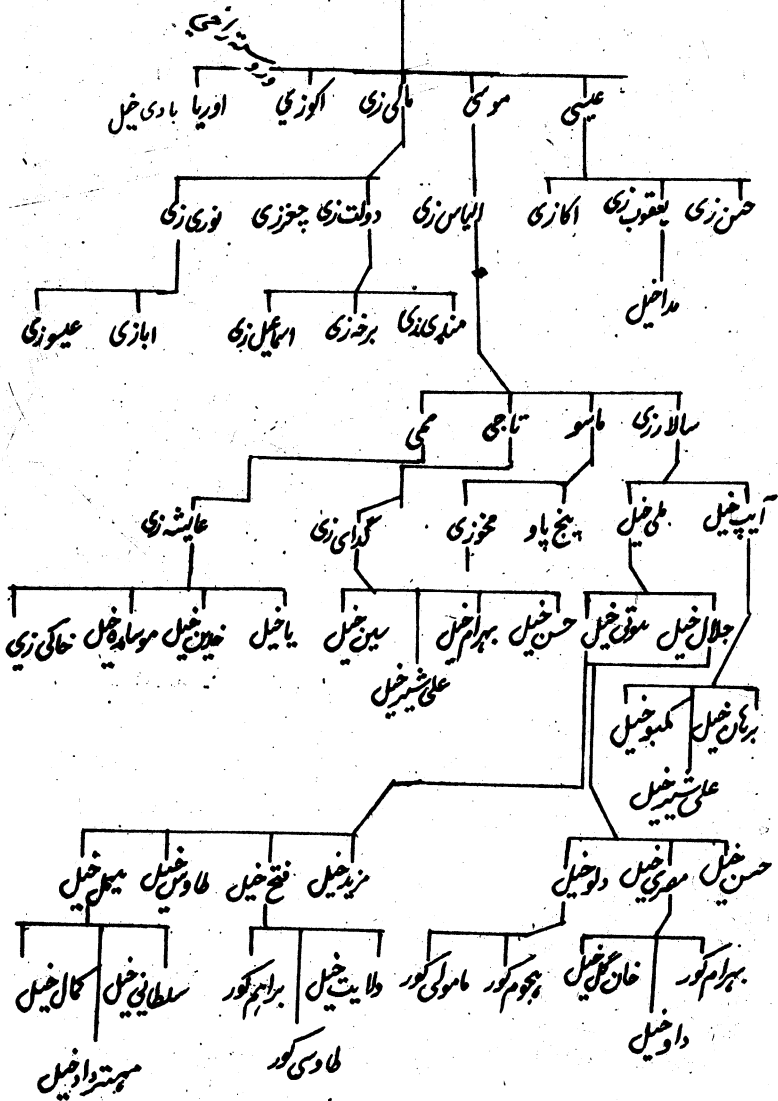 عیسی موسی مالی زی اکوزي اوریا بادی خیل
حسن زی یعقوب زی اکازی الیاس زی دولت زی چغرزی نوری زی
مداخیل
مندی زی برخه زی اسماعیل زی ابازی عیسوزی
سالارزی ماسو تاجی ممی
آیپ خیل ملی خیل پنج پاو مخوزی گدای زی عایشه زی
جلال خیل حسن خیل بهرام خیل سین خیل یاخیل خدین خیل خاکی زي
علی شیر خیل
برهان خیل
علی شیر خیل
حسن خیل مصری خیل دلو خیل مزید خیل فتح خیل طاوس خیل
بهرام کور خان گل خیل پیجوم کور مامولی کور ولایت خیل براهیم کور سلطانی خیل کمال خیل
داو خیل
طاوسی کور
مهتر داد خیل